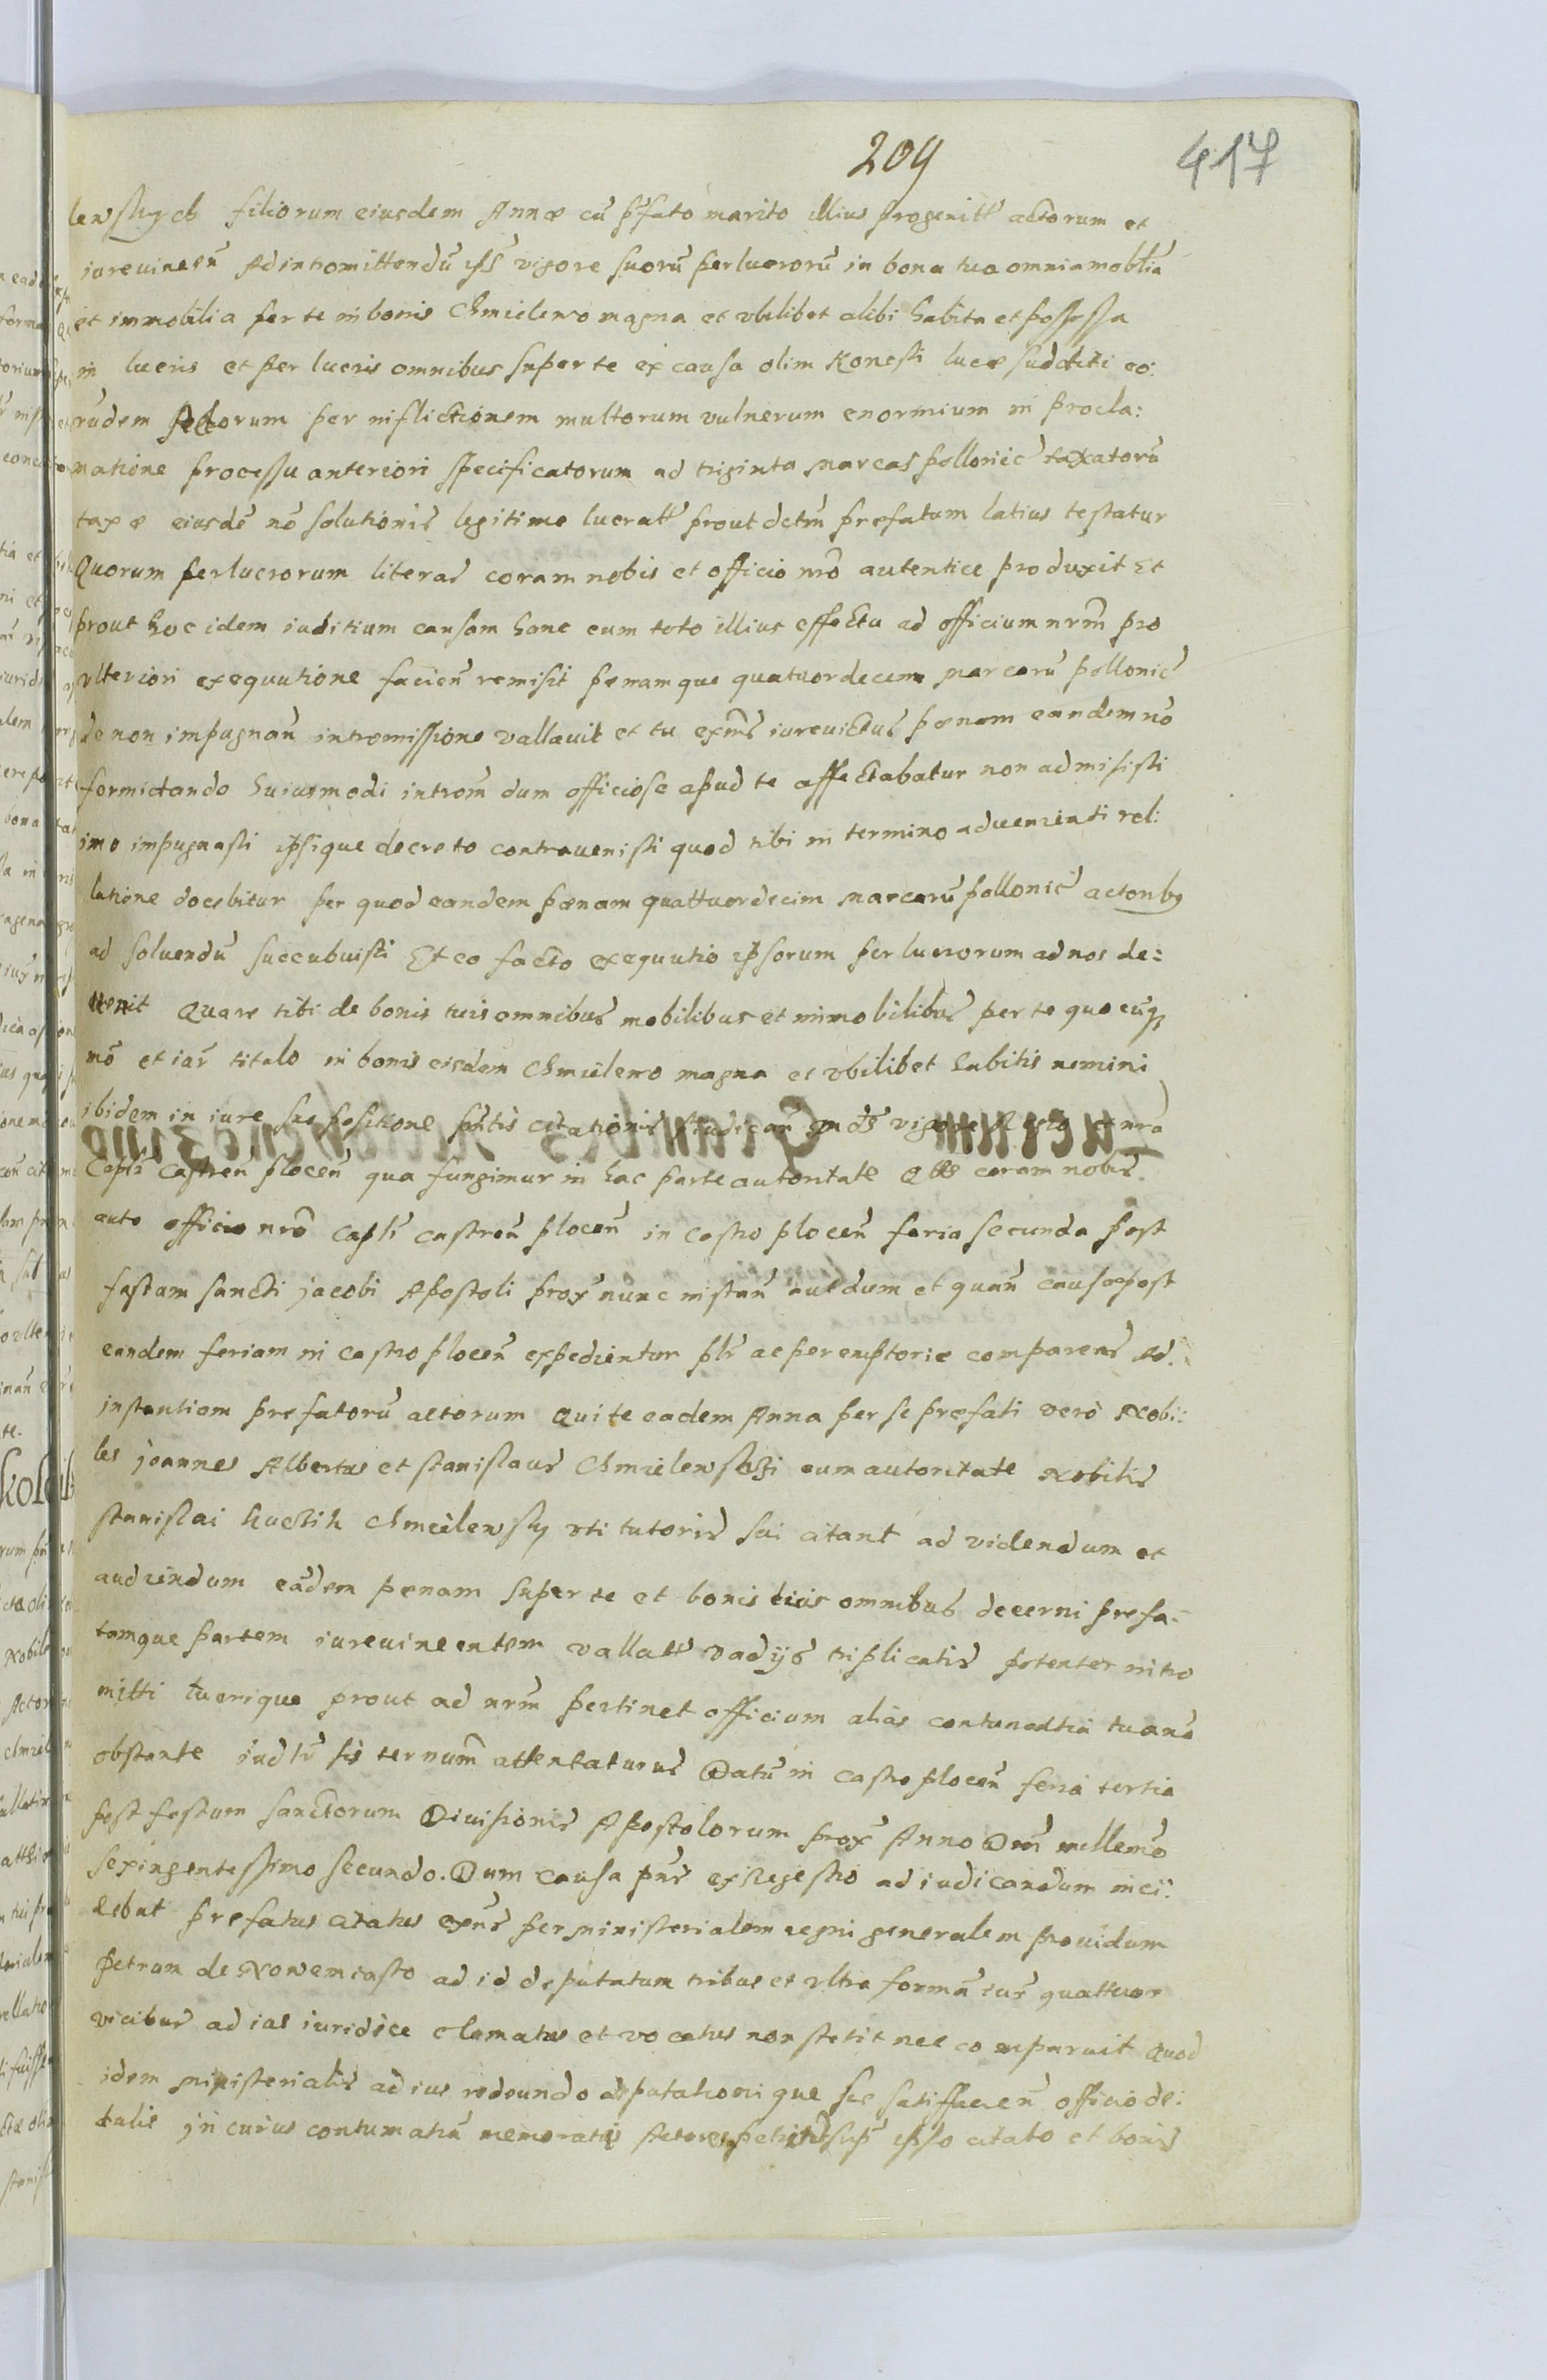 209
417
lewskych filiorum eiusdem Annæ cũ pfato marito illius progenitt actorum et
iurevincen̄ Ad intromittendũ ipss vigore suorũ perlucrorũ in bona tua omnia moblia
et immobilia per te in bonis Chmielewo magna et vbilibet alibi habita et possessa
in lucris et per lucris omnibus super te ex causa olim Honesti lucæ subditi eo:
rūdem Actorum per inflictionem multorum vulnerum enormium in procla:
matione processu anteriori specificatorum ad triginta marcas pollonic taxatorũ
taxæ eiusdē nō solutionis legitime lucratt prout detm̄ prefatum latius testatur
Quorum perlucrorum literas coram nobis et officio nrō autentice produxit Et
prout hoc idem iuditium causam hanc cum toto illius effectu ad officium nrm̄ pro
vlteriori exequutione facien̄ remisit penamque quatuordecim marcarũ pollonic
de non impugnan̄ intromissione vallavit et tu exn̄s iurevictus pœnam eandem nō
formidando huiusmodi introm̄ dum officiose apud te affectabatur non admisisti
imo impugnasti ipsique decreto contravenisti quod tibi in termino advenienti rel:
latione docebitur per quod eandem pœnam quattuordecim marcarũ pollonic actoribs
ad solvendũ succubuisti Et eo facto exequutio ipsorum per lucrorum ad nos de:
uenit Quare tibi de bonis tuis omnibus mobilibus et immobilibus per te quocunq
mō et iur titulo in bonis eisdem Chmielewo magna et vbilibet habitis nemini
ibidem in iure suo positione pntis citationis iudican̄ mads vigore Regio et nrā
Capli castren̄ plocen̄ qua fungimur in hac parte autoritate Qtts coram nobis
auto officio nrō capli castren̄ plocen̄ in castro plocen̄ feria secunda post
festam sancti jacobi Apostoli prox nunc instan̄ aut dum et quan̄ causæ post
eandem feriam in castro plocen̄ expedientur plr ac peremptorie compareas Ad
instantiam prefatorũ actorum Qui te eadem Anna per se prefati vero Nobi:
les joannes Albertus et stanislaus Chmielewski cum autoritate Nobilis
stanislai Chmielewsky vti tutoris sui citant ad videndum et
audiendum eādem penam super te et bonis tuis omnibus decerni prefa:
tamque partem iurevincentem vallatt vadijs triplicatis potenter intro
mitti tuerique prout ad nrm̄ pertinet officium alias contumatia tua nō
obstante iudlr sis ternum̄ attentaturus Datũ in castro plocen̄ feria tertia
post festum sanctorum Divisionis Apostolorum prox Anno Dnī millemō
sexingentessimo secundo. Dum causa pns ex Regestro ad iudicandum inci:
debat prefatus citatus exn̄s per ministerialem regni generalem providum
petrum de Nowemiasto ad id deputatum tribus et vltra formā iur quattuor
vicibus ad ius iuridice clamatus et vocatus non stetit nec comparuit Quod
idem ministerialis ad ius redeundo deputationique sue satisfacien̄ officio de:
tulit jn cuius contumatiā memorati Actores sup ipso citato et bonis